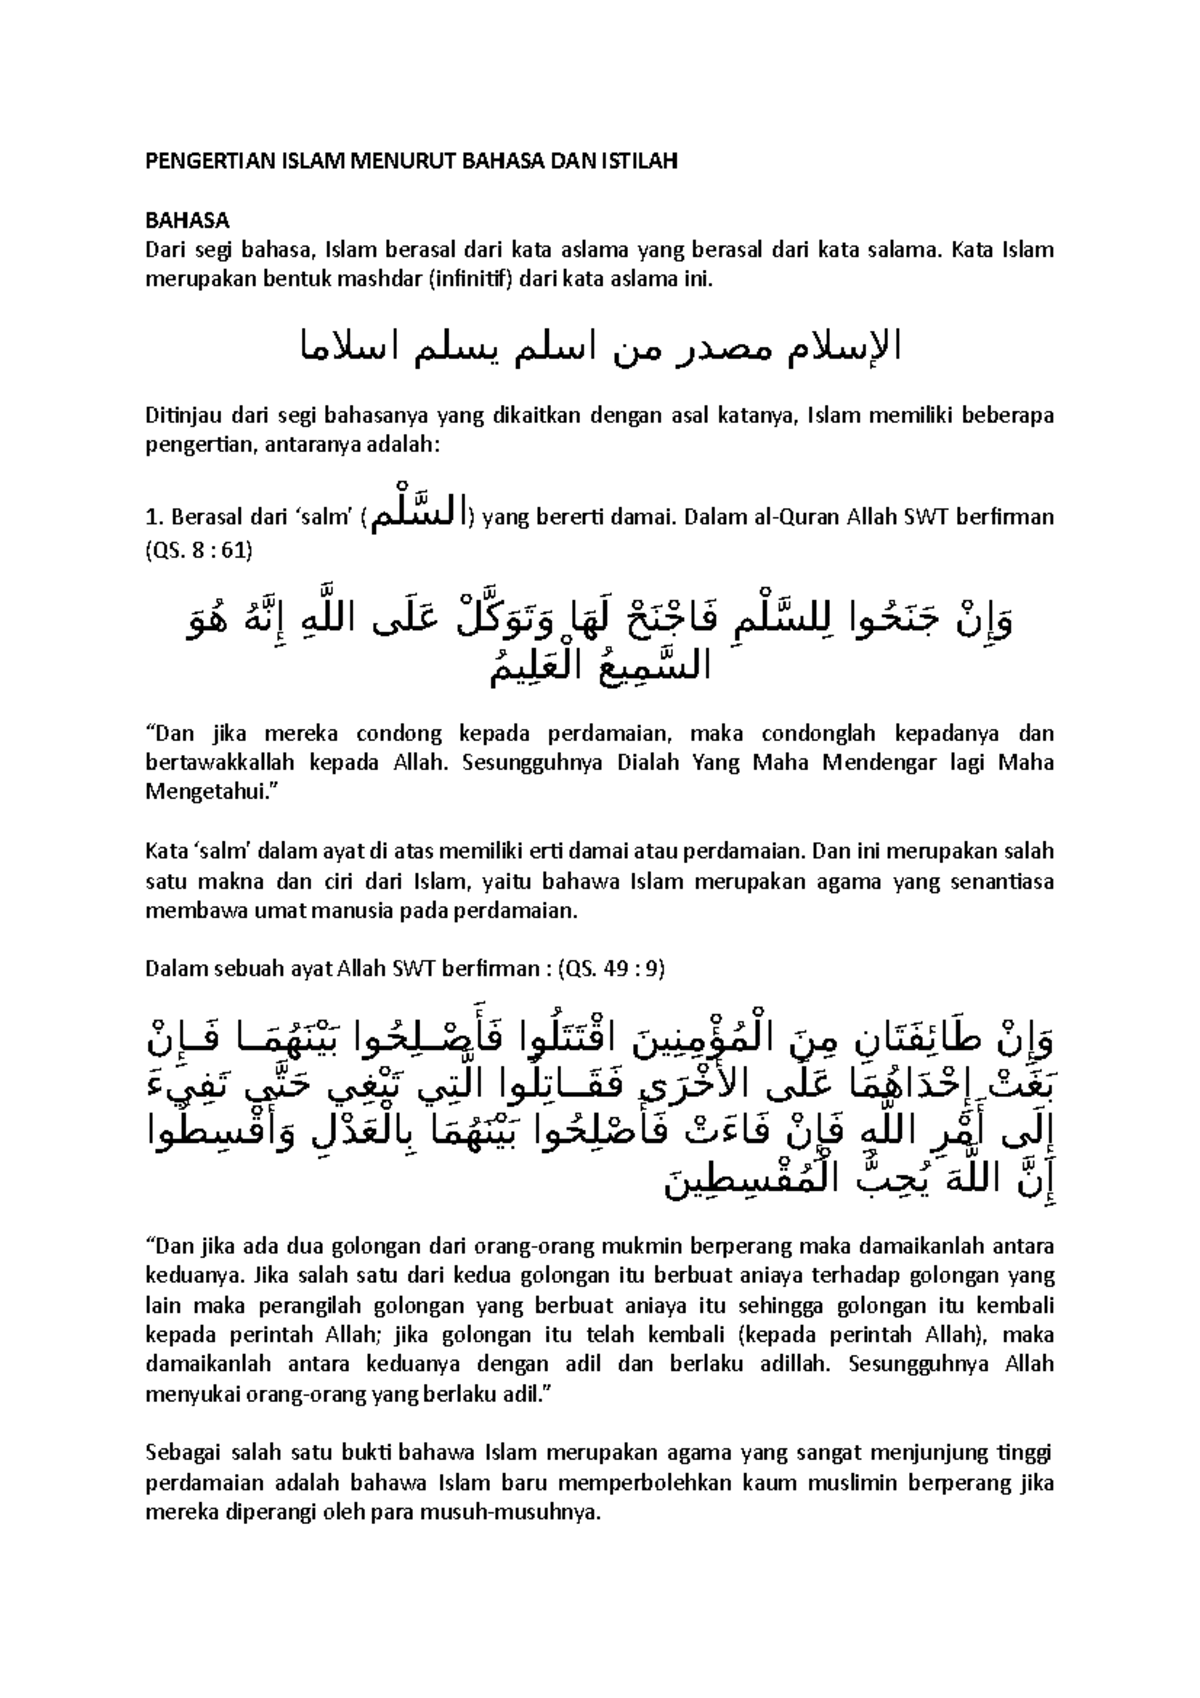 PENGERTIAN ISLAM MENURUT BAHASA DAN ISTILAH
BAHASA
Dari segi bahasa, Islam berasal dari kata aslama yang berasal dari kata salama. Kata Islam
merupakan bentuk mashdar (infinitif) dari kata aslama ini.
الإسلام مصدر من اسلم يسلم اسلاما
Ditinjau dari segi bahasanya yang dikaitkan dengan asal katanya, Islam memiliki beberapa
pengertian, antaranya adalah:
1. Berasal dari ‘salm’ (السَّلْم) yang bererti damai. Dalam al-Quran Allah SWT berfirman
(QS. 8 : 61)
وَإِنْ جَنَحُوا لِلسَّلْمِ فَاجْنَحْ لَهَا وَتَوَكَّلْ عَلَى اللَّهِ إِنَّهُ هُوَ
السَّمِيعُ الْعَلِيمُ
“Dan jika mereka condong kepada perdamaian, maka condonglah kepadanya dan
bertawakkallah kepada Allah. Sesungguhnya Dialah Yang Maha Mendengar lagi Maha
Mengetahui.”
Kata ‘salm’ dalam ayat di atas memiliki erti damai atau perdamaian. Dan ini merupakan salah
satu makna dan ciri dari Islam, yaitu bahawa Islam merupakan agama yang senantiasa
membawa umat manusia pada perdamaian.
Dalam sebuah ayat Allah SWT berfirman : (QS. 49 : 9)
وَإِنْ طَائِفَتَانِ مِنَ الْمُؤْمِنِينَ اقْتَتَلُوا فَأَصْـلِحُوا بَيْنَهُمَـا فَـإِنْ
بَغَتْ إِحْدَاهُمَا عَلَى الأُخْرَى فَقَـاتِلُوا الَّتِي تَبْغِي حَتَّى تَفِيءَ
إِلَى أَمْرِ اللَّهِ فَإِنْ فَاءَتْ فَأَصْلِحُوا بَيْنَهُمَا بِالْعَدْلِ وَأَقْسِطُوا
إِنَّ اللَّهَ يُحِبُّ الْمُقْسِطِينَ
“Dan jika ada dua golongan dari orang-orang mukmin berperang maka damaikanlah antara
keduanya. Jika salah satu dari kedua golongan itu berbuat aniaya terhadap golongan yang
lain maka perangilah golongan yang berbuat aniaya itu sehingga golongan itu kembali
kepada perintah Allah; jika golongan itu telah kembali (kepada perintah Allah), maka
damaikanlah antara keduanya dengan adil dan berlaku adillah. Sesungguhnya Allah
menyukai orang-orang yang berlaku adil.”
Sebagai salah satu bukti bahawa Islam merupakan agama yang sangat menjunjung tinggi
perdamaian adalah bahawa Islam baru memperbolehkan kaum muslimin berperang jika
mereka diperangi oleh para musuh-musuhnya.